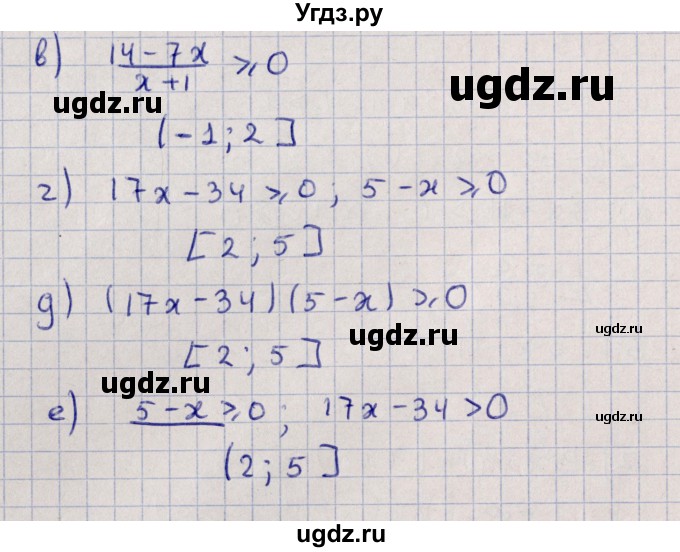 Угдз.ру
в) 14-7x / x+1 ⩾ 0
ugdz.ru
ugdz.ru
(-1; 2]
ugdz.ru
г) 17x-34 ⩾ 0; 5-x ⩾ 0
[2; 5]
д) (17x-34)(5-x) ⩾ 0
ugdz.ru
ugdz.ru
[2; 5]
ugdz.ru
е) 5-x ⩾ 0; 17x-34 > 0
ugdz.ru
(2; 5]
ugdz.ru